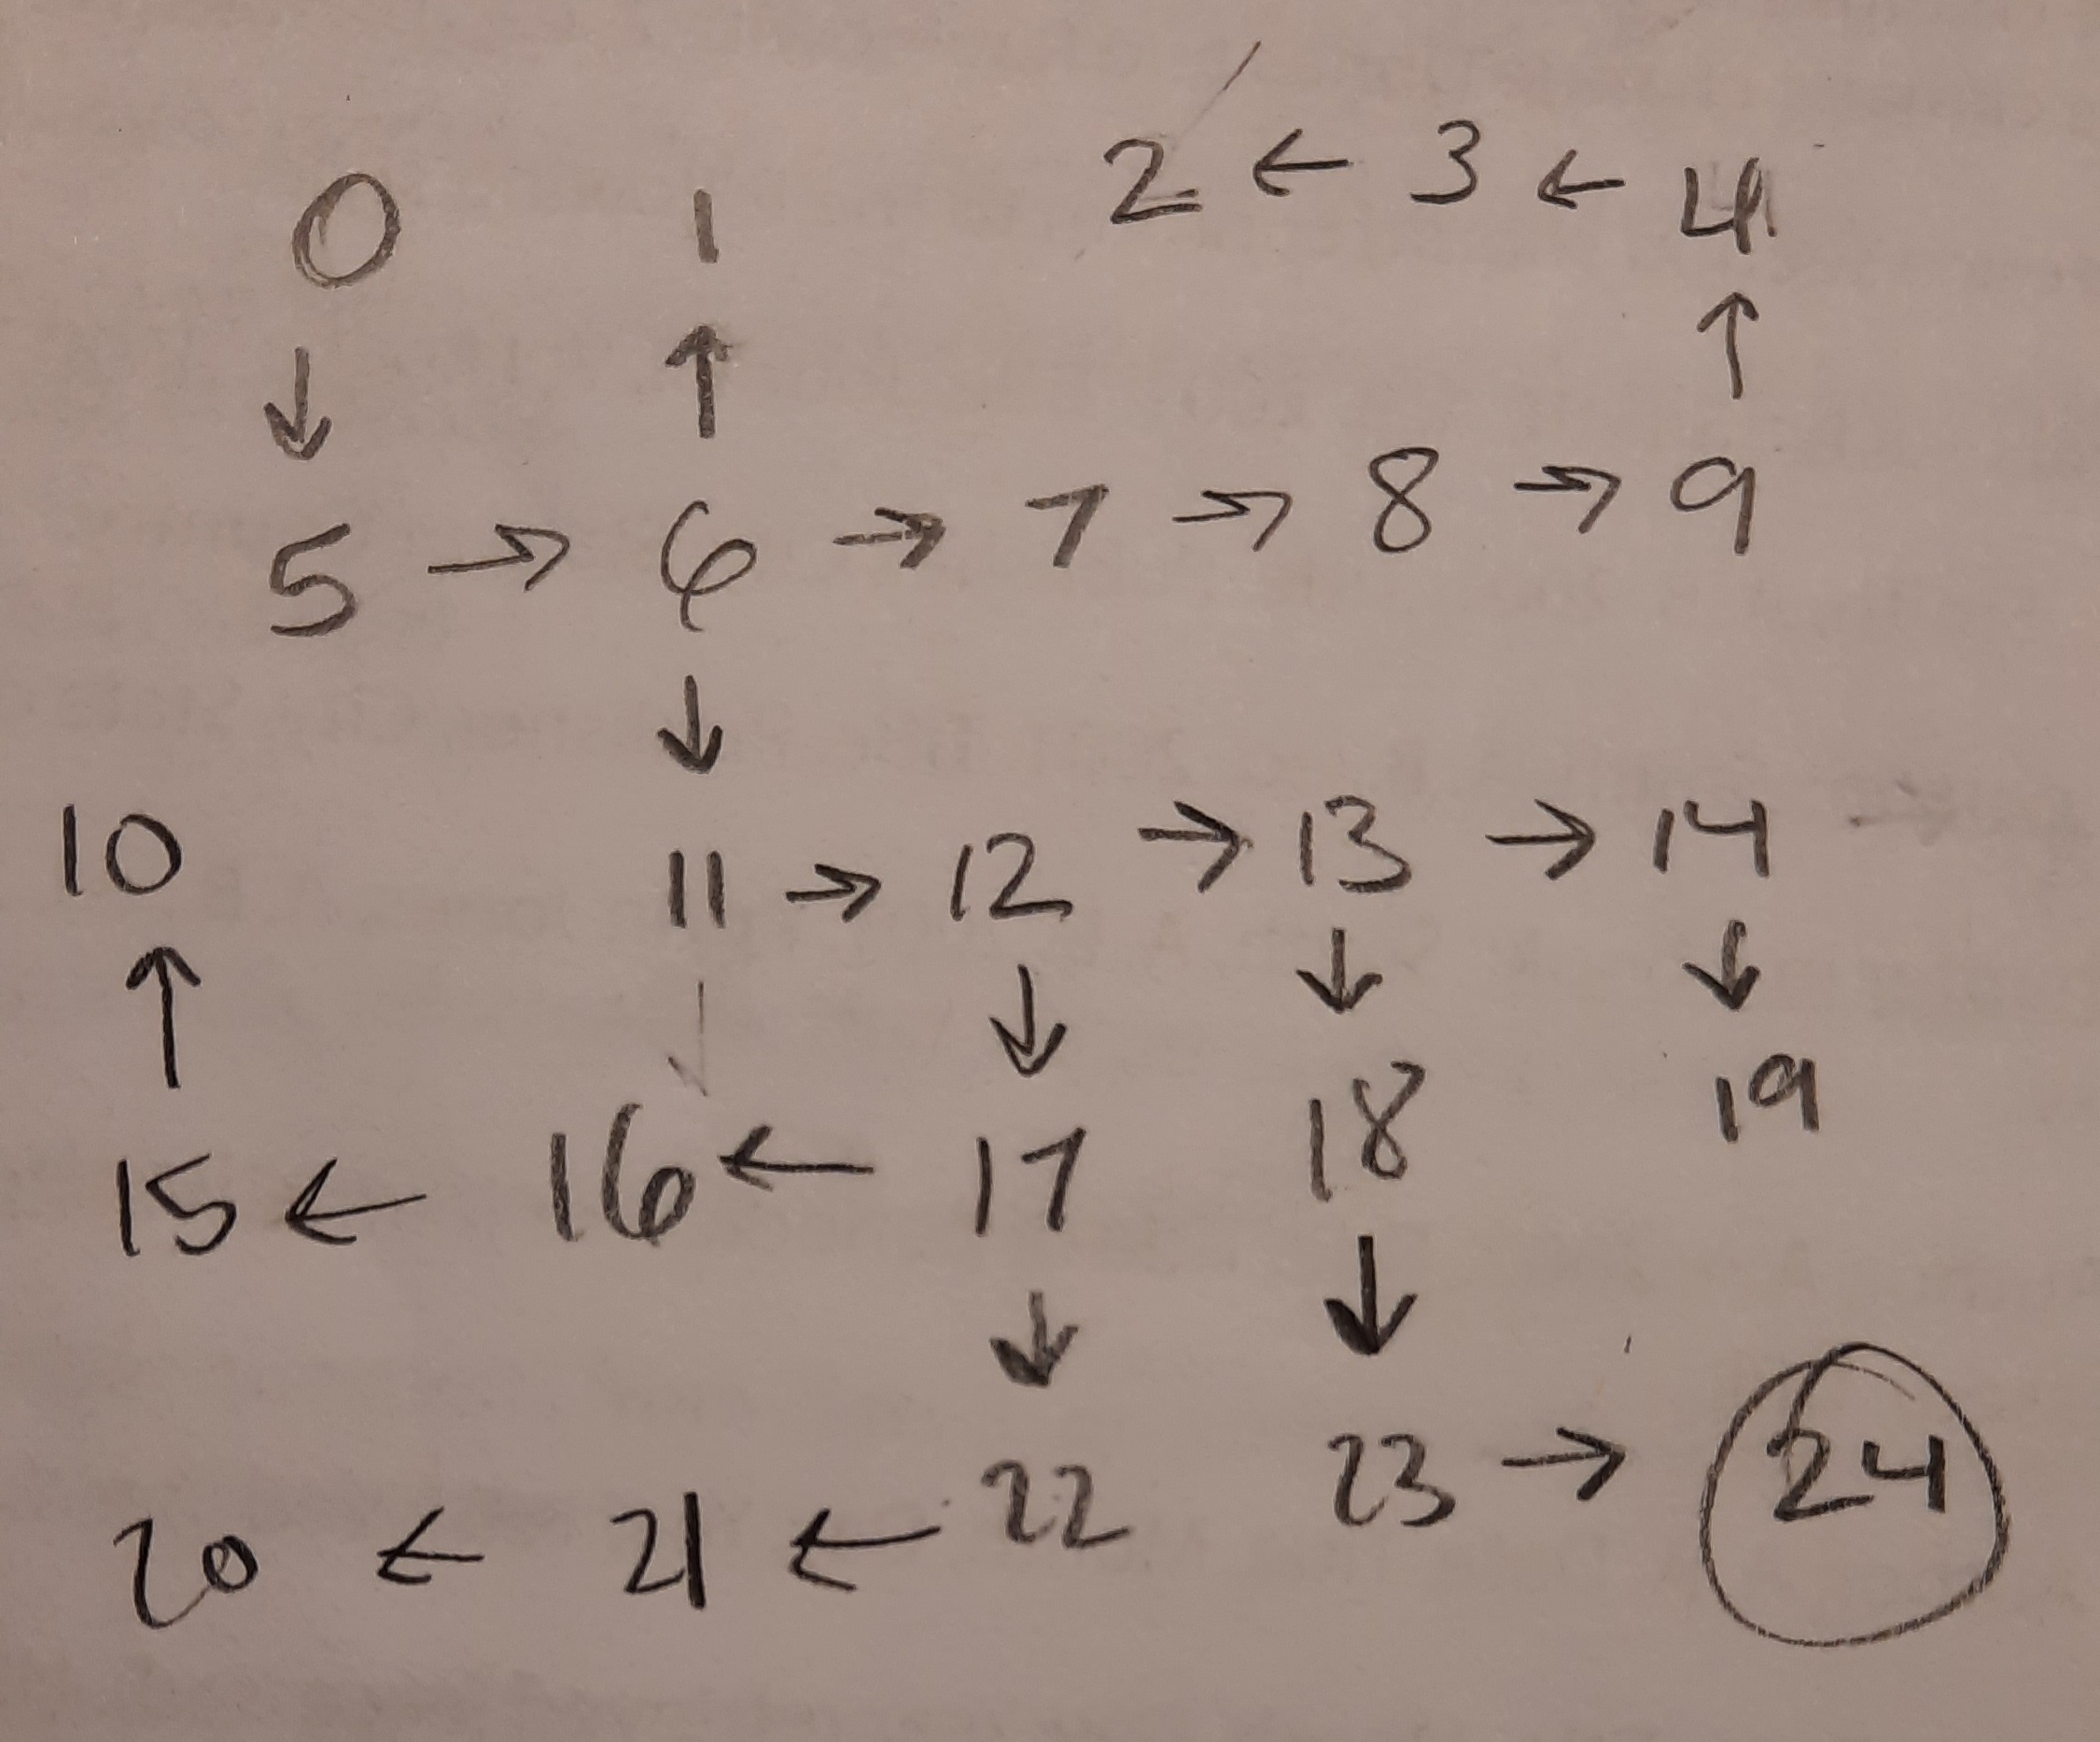 0 1 2 ← 3 ← 4
↓ ↑ ↑
5 → 6 → 7 → 8 → 9
↓
10 11 → 12 → 13 → 14
↑ ↓ ↓ ↓ ↓
15 ← 16 ← 17 18 19
↓ ↓
20 ← 21 ← 22 23 → 24